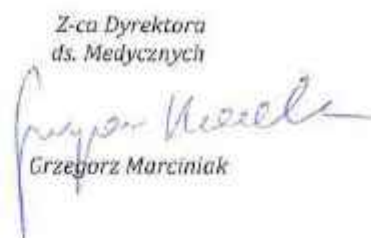 Z-ca Dyrektora
ds. Medycznych
Grzegorz Marciniak